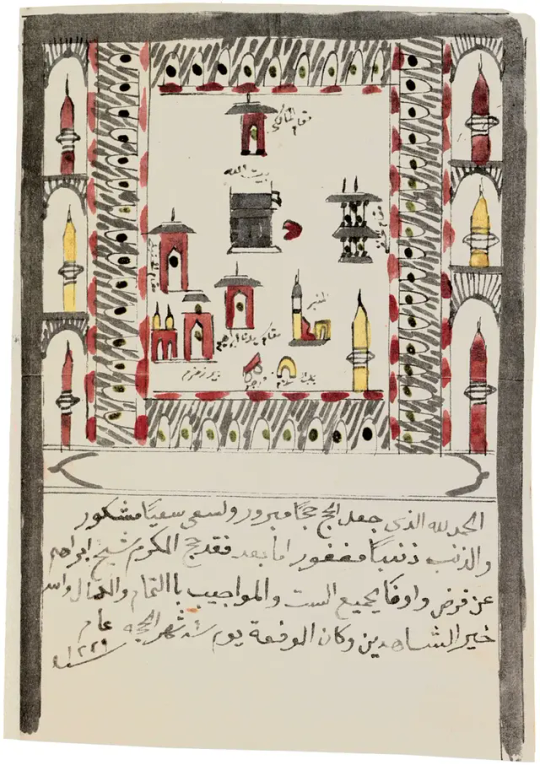 مقام المالكي
بيت الله
منبر
مقام سيدنا ابراهيم
بئر زمزم
باب السلام
درج
الحمد لله الذي جعل الحج حجا مبرور ولسعي سعيا مشكور
والذنب ذنبا مغفور اما بعد فقد حج المكرم شيخ ابراهم
عن فرض واوفا بجميع الست والمواجيب باالتمام والكمال والله
خير الشاهدين وكان الوقفة يوم شهر الحجه عام
سنة ١٢٢٩